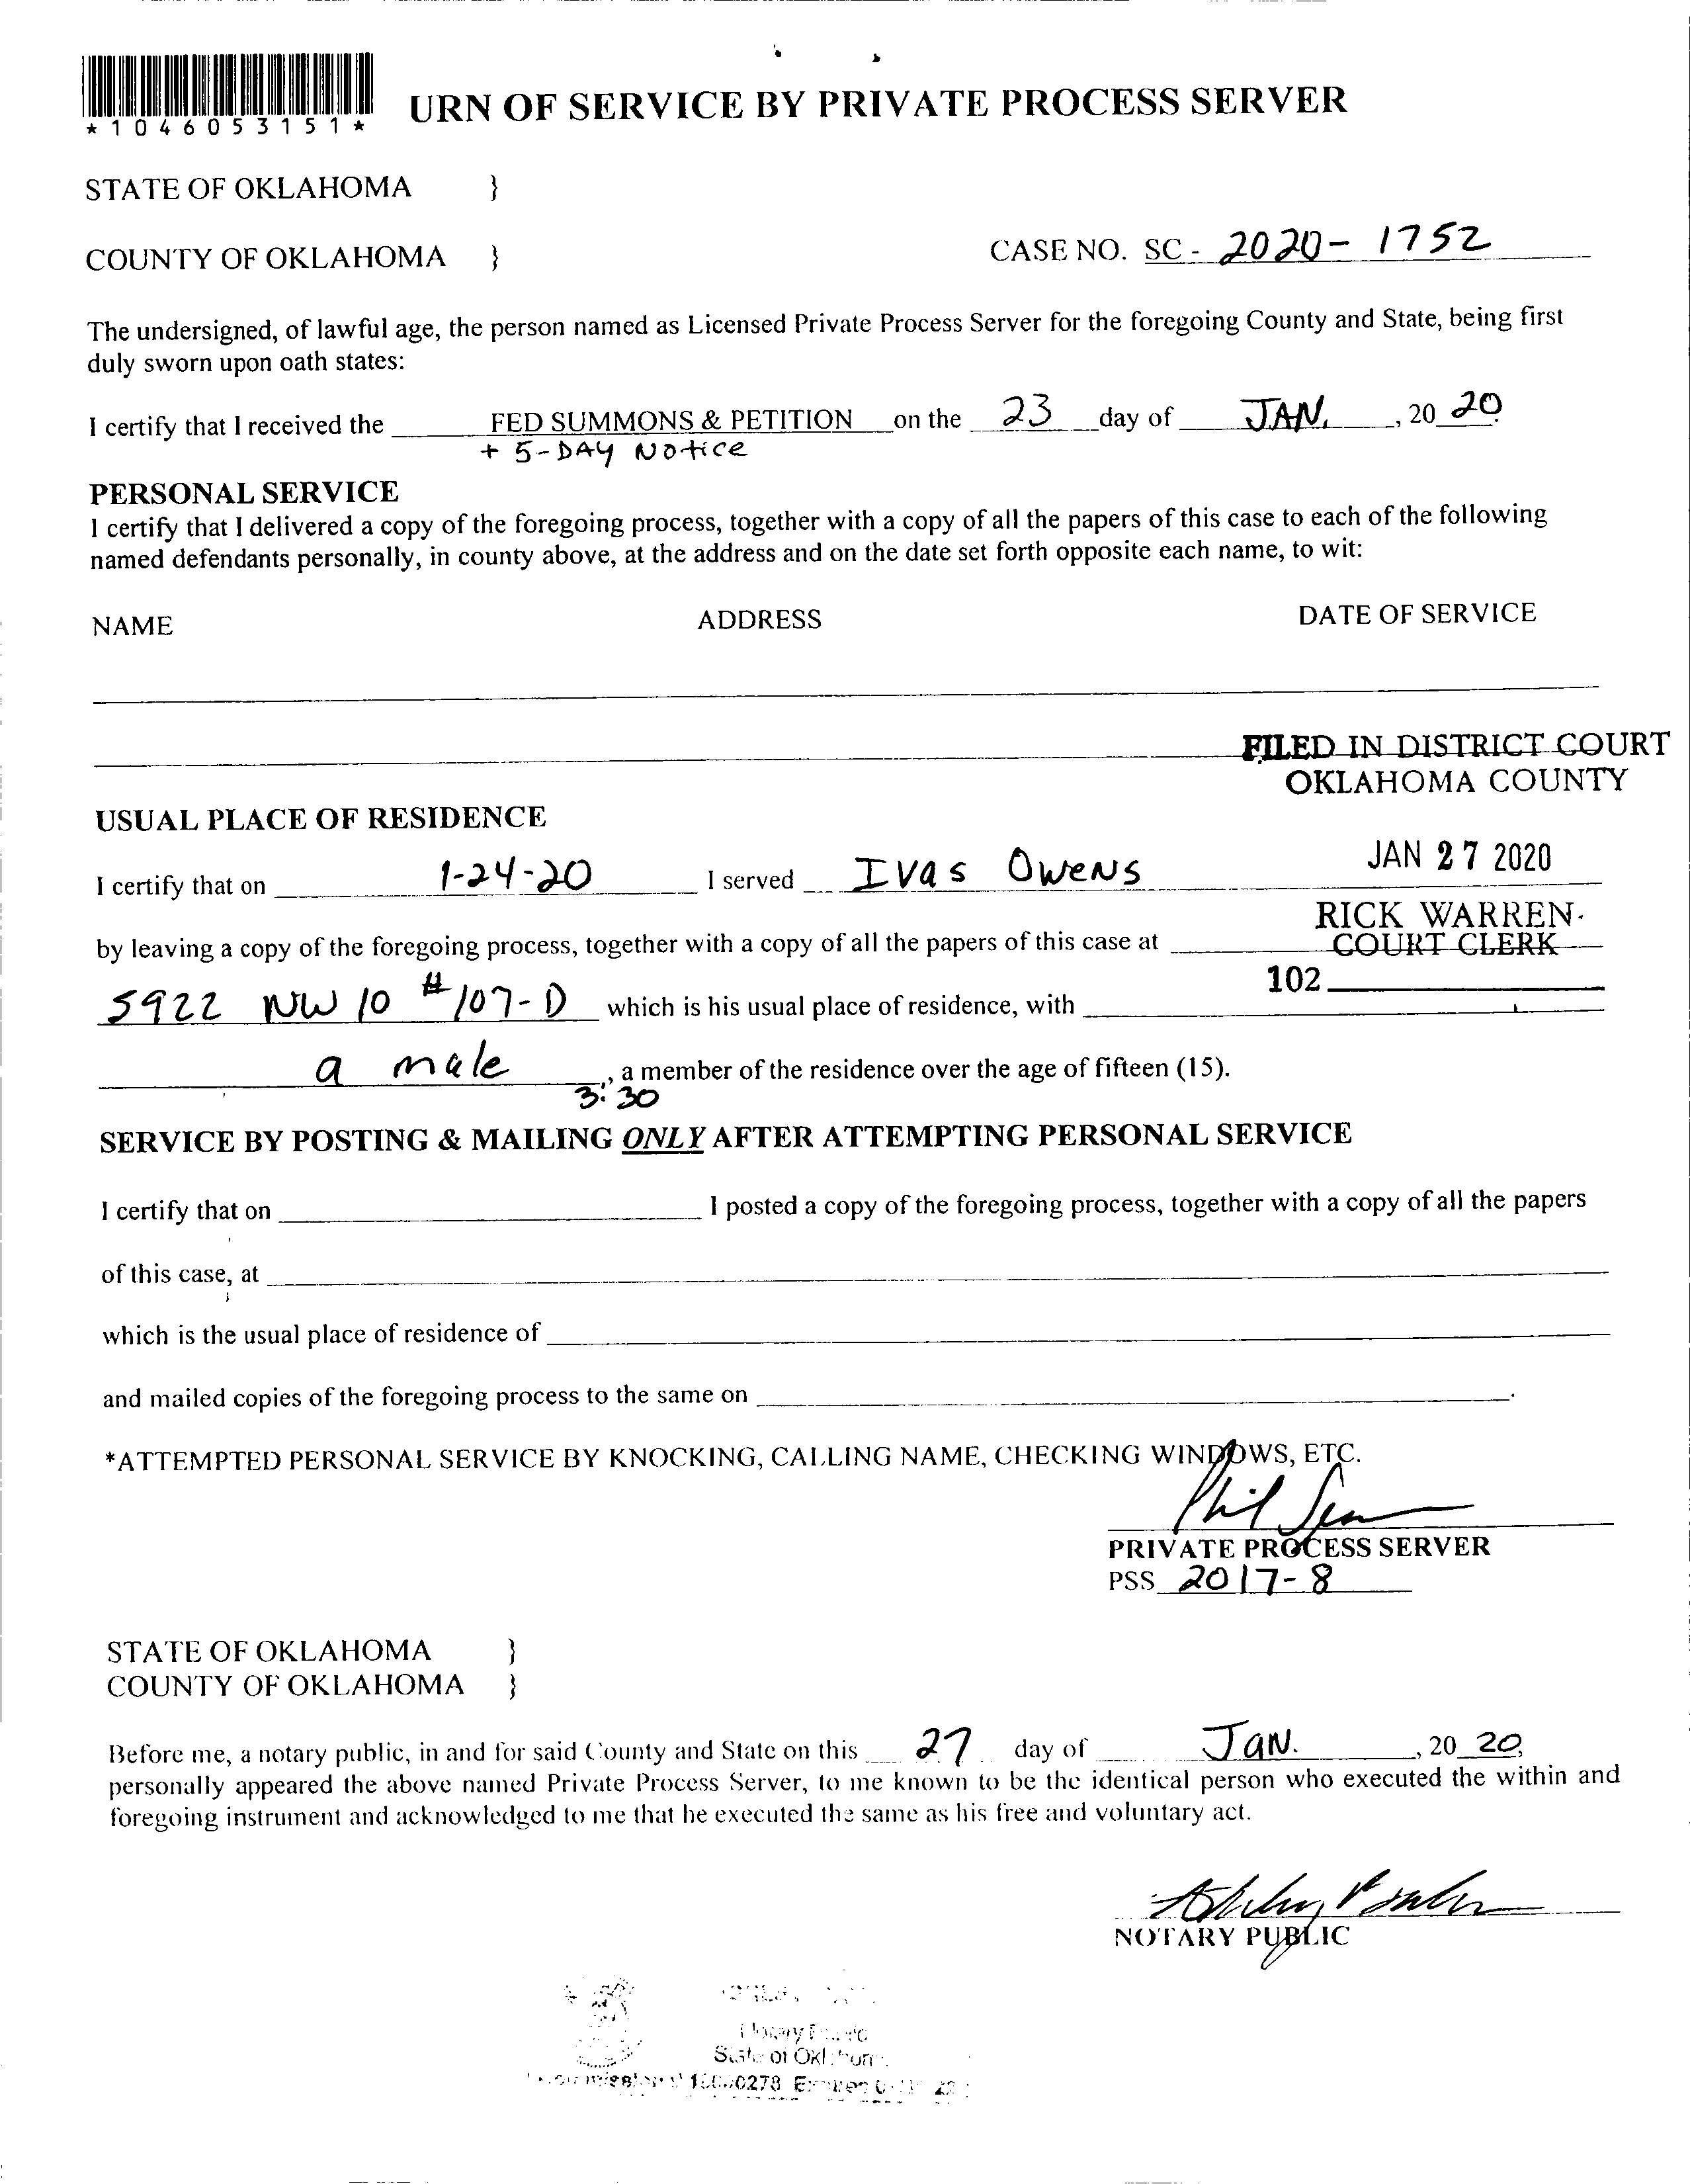 *1046053151*
URN OF SERVICE BY PRIVATE PROCESS SERVER
STATE OF OKLAHOMA }
COUNTY OF OKLAHOMA }
CASE NO. SC - 2020- 1752
The undersigned, of lawful age, the person named as Licensed Private Process Server for the foregoing County and State, being first
duly sworn upon oath states:
I certify that I received the FED SUMMONS & PETITION on the 23 day of JAN. , 20 20.
+ 5-DAY Notice
PERSONAL SERVICE
I certify that I delivered a copy of the foregoing process, together with a copy of all the papers of this case to each of the following
named defendants personally, in county above, at the address and on the date set forth opposite each name, to wit:
NAME ADDRESS DATE OF SERVICE
FILED IN DISTRICT COURT
OKLAHOMA COUNTY
USUAL PLACE OF RESIDENCE
JAN 27 2020
I certify that on 1-24-20 I served Ivas Owens
RICK WARREN
COURT CLERK
by leaving a copy of the foregoing process, together with a copy of all the papers of this case at
102
5922 NW 10 #107-D which is his usual place of residence, with
a male , a member of the residence over the age of fifteen (15).
3:30
SERVICE BY POSTING & MAILING ONLY AFTER ATTEMPTING PERSONAL SERVICE
I certify that on I posted a copy of the foregoing process, together with a copy of all the papers
of this case, at
which is the usual place of residence of
and mailed copies of the foregoing process to the same on .
*ATTEMPTED PERSONAL SERVICE BY KNOCKING, CALLING NAME, CHECKING WINDOWS, ETC.
Phil
PRIVATE PROCESS SERVER
PSS 2017-8
STATE OF OKLAHOMA }
COUNTY OF OKLAHOMA }
Before me, a notary public, in and for said County and State on this 27 day of JAN. , 20 20,
personally appeared the above named Private Process Server, to me known to be the identical person who executed the within and
foregoing instrument and acknowledged to me that he executed the same as his free and voluntary act.
NOTARY PUBLIC
Notary Public
State of Oklahoma